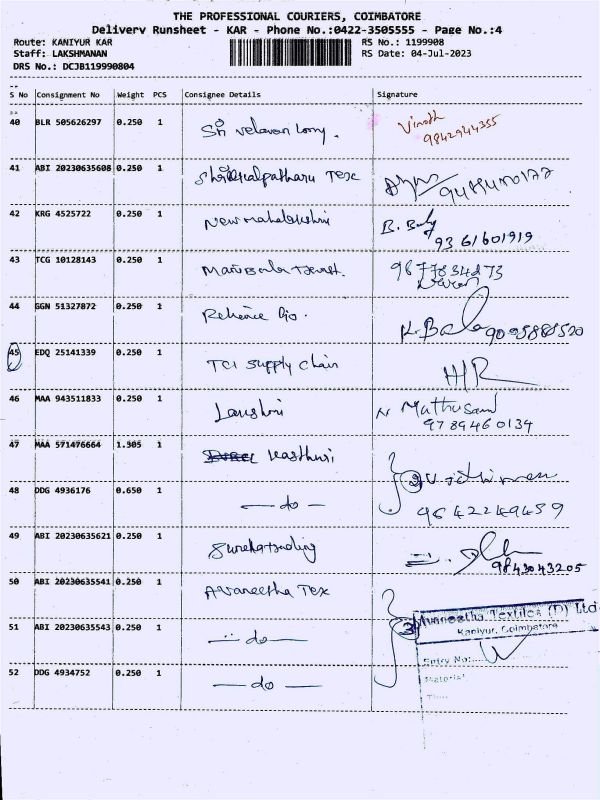 THE PROFESSIONAL COURIERS, COIMBATORE
Delivery Runsheet - KAR - Phone No.:0422-3505555 - Page No.:4
Route: KANIYUR KAR RS No.: 1199908
Staff: LAKSHMANAN RS Date: 04-Jul-2023
DRS No.: DCJB119990804
S No Consignment No Weight PCS Consignee Details Signature
40 BLR 505626297 0.250 1 Sri velavan lorry. Vinoth
9842944355
41 ABI 20230635608 0.250 1 Tex
42 KRG 4525722 0.250 1 New mahalakshmi B. Baby
9361601919
43 TCG 10128143 0.250 1
44 GGN 51327872 0.250 1 Relience Gio. K. Bala 9095888520
45 EDQ 25141339 0.250 1 TCI Supply Chain
46 MAA 943511833 0.250 1 Lakshmi N Muthusami
9789460134
47 MAA 571476664 1.305 1 Kasthuri
48 DDG 4936176 0.650 1 — do — 9842249459
49 ABI 20230635621 0.250 1 Surekatrading 9843043205
50 ABI 20230635541 0.250 1 Avaneetha Tex
Avaneetha Textiles (P) Ltd
51 ABI 20230635543 0.250 1 — do — 3 Kaniyur, Coimbatore
Entry No:
52 DDG 4934752 0.250 1 — do — Material
Time